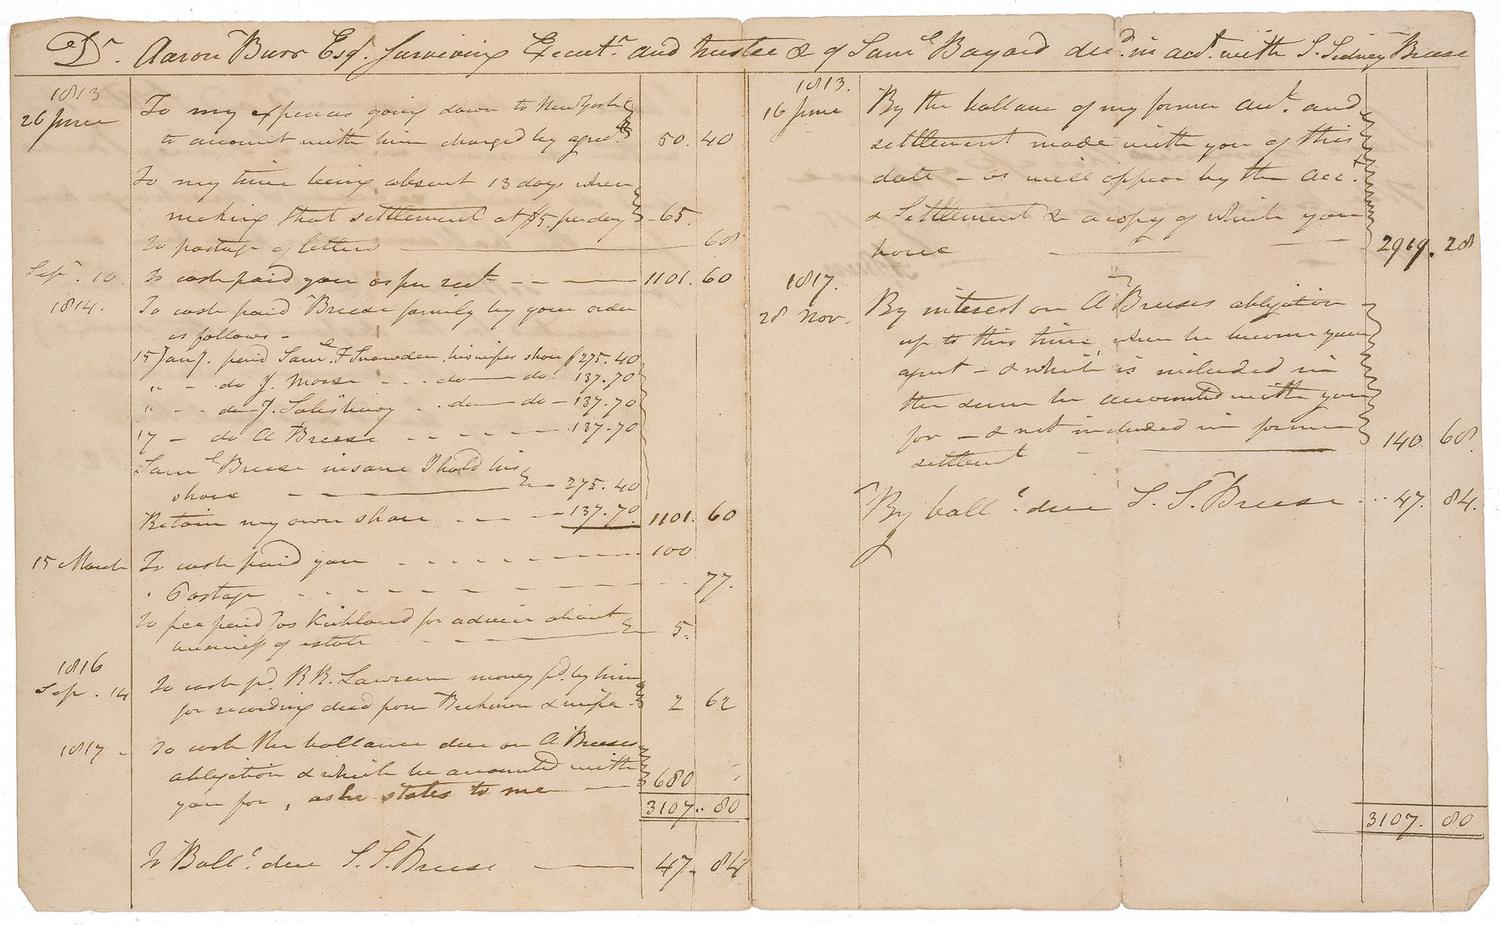 Dr. Aaron Burr Esqr. Surviving Executr. and trustee & of Saml. Bayard decd. in acct. with S. Sidney Breese
1813
26 June To my expences going down to New York
to account with him charged by agret. 50. 40
To my time being absent 13 days when
making that settlement at $5. per day 65
To postage of letters 60
Sept. 10 To cash paid you as per rect 1101. 60
1814. To cash paid Breese family by your order
as follows -
15 Jany. paid Saml. F Snowden his wifes share $275.40
" - do J. Morse - do do - 137.70
" - do J. Salisbury - do do - 137.70
17 - do A Breese - 137.70
Saml. Breese insane I hold his
share 275.40
Retain my own share 137.70 1101. 60
15 March To cash paid you 100
" Postage 77.
To fee paid Jos Kirkland for advice about
business of estate 5.
1816
Sep. 14 To cash pd. R R. Lawrence money pd. by him
for recording deed from Beekman & wife 2 62
1817 - To cash the ballance due on A Breeses
obligation & which he accounted with
you for, as he states to me 680
3107.. 80
To Balle. due S. S. Breese 47. 84
1813.
16 June By the ballance of my former acct. and
settlement made with you of this
date - as will appear by the acct.
& Settlement & a copy of which you
have 2919. 28
1817.
28 Nov. By interest on A Breeses obligation
up to this time when he became your
agent - & which is included in
the sum he accounted with you
for - & not included in former
settlement 140 60
By balle. due S. S. Breese 47. 84.
3107. 80